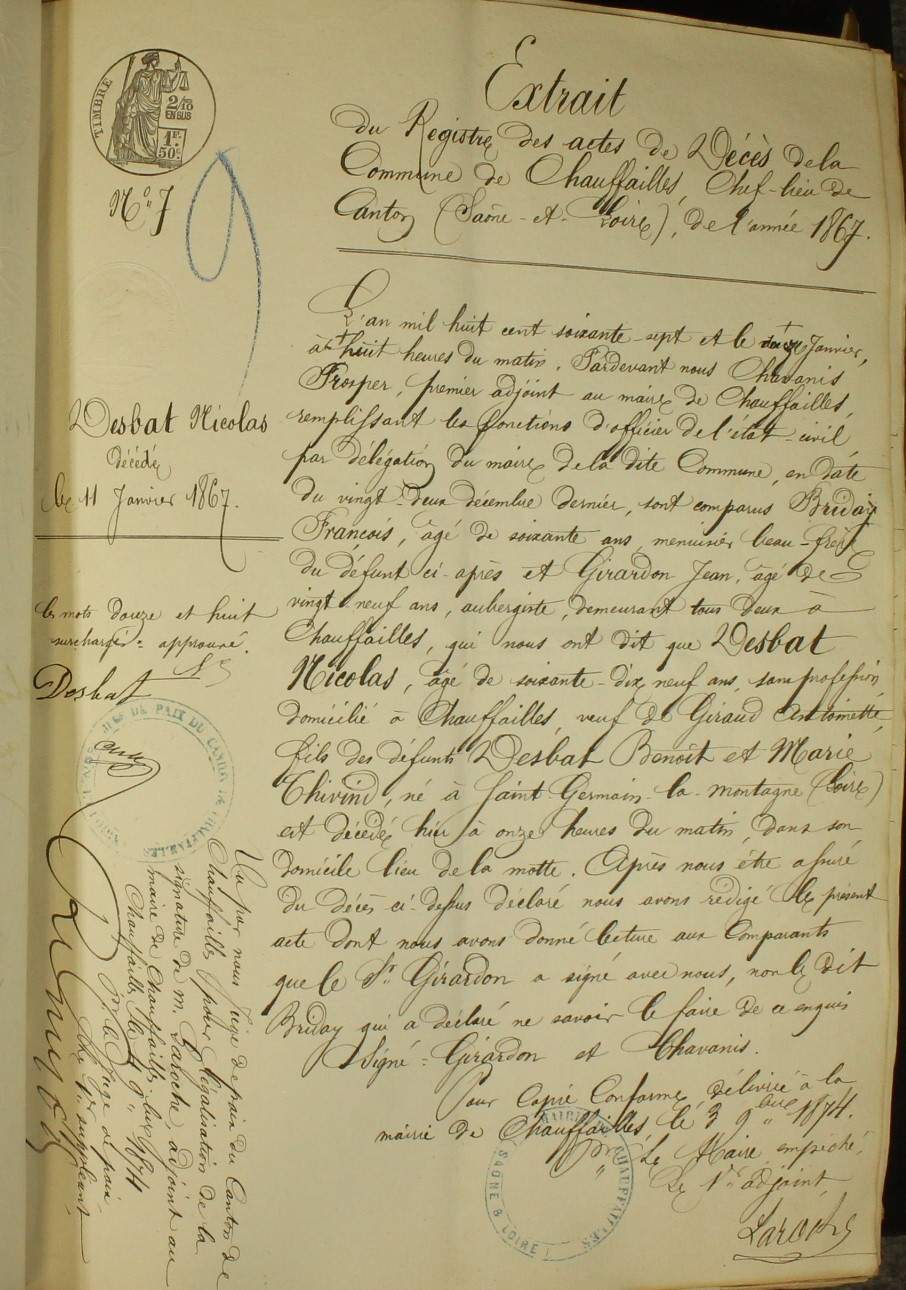 TIMBRE
2/10
EN SUS
1F.
50c.
N.o 7
9
Extrait
du Registre des actes de Décès de la
Commune de Chauffailles, Chef-lieu de
Canton (Saône-et-Loire), de l'année 1867.
L'an mil huit cent soixante-sept et le douze Janvier,
à huit heures du matin. Pardevant nous Chavanis
Prosper, premier adjoint au maire de Chauffailles,
remplissant les fonctions d'officier de l'état-civil
par délégation du maire de la dite Commune, en date
du vingt-deux décembre dernier, sont comparus Briday
François, âgé de soixante ans, menuisier beau-frère
du défunt ci-après et Girardon Jean, âgé de
vingt-neuf ans, aubergiste, demeurant tous deux à
Chauffailles, qui nous ont dit que Desbat
Nicolas, âgé de soixante-dix neuf ans, sans profession
domicilié à Chauffailles, veuf de Giraud Antoinette,
fils des défunts Desbat Benoît et Marie
Thivind, né à Saint-Germain-la-montagne (Loire)
est décédé hier à onze heures du matin, dans son
domicile lieu de la motte. Après nous être assuré
du décès ci-dessus déclaré nous avons rédigé le présent
acte dont nous avons donné lecture aux Comparants
que le Sr. Girardon a signé avec nous, non le dit
Briday qui a déclaré ne savoir le faire de ce enquis
Signé = Girardon et Chavanis.
Pour Copie Conforme délivrée à la
mairie de Chauffailles, le 3 9bre 1874.
Le Maire empêché,
Le 1er adjoint,
Laroche
MAIRIE CHAUFFAILLES
SAONE & LOIRE
Desbat Nicolas
décédé
le 11 Janvier 1867.
les mots douze et huit
surchargés = approuvé.
Desbat
DE PAIX DU CANTON DE CHAUFFAILLES
Vu par nous Juge de paix du Canton de
Chauffailles, pour légalisation de la
signature de M. Laroche, adjoint au
maire de Chauffailles.
Chauffailles, le 4 9bre 1874
Le Juge de paix
Le 1er suppléant